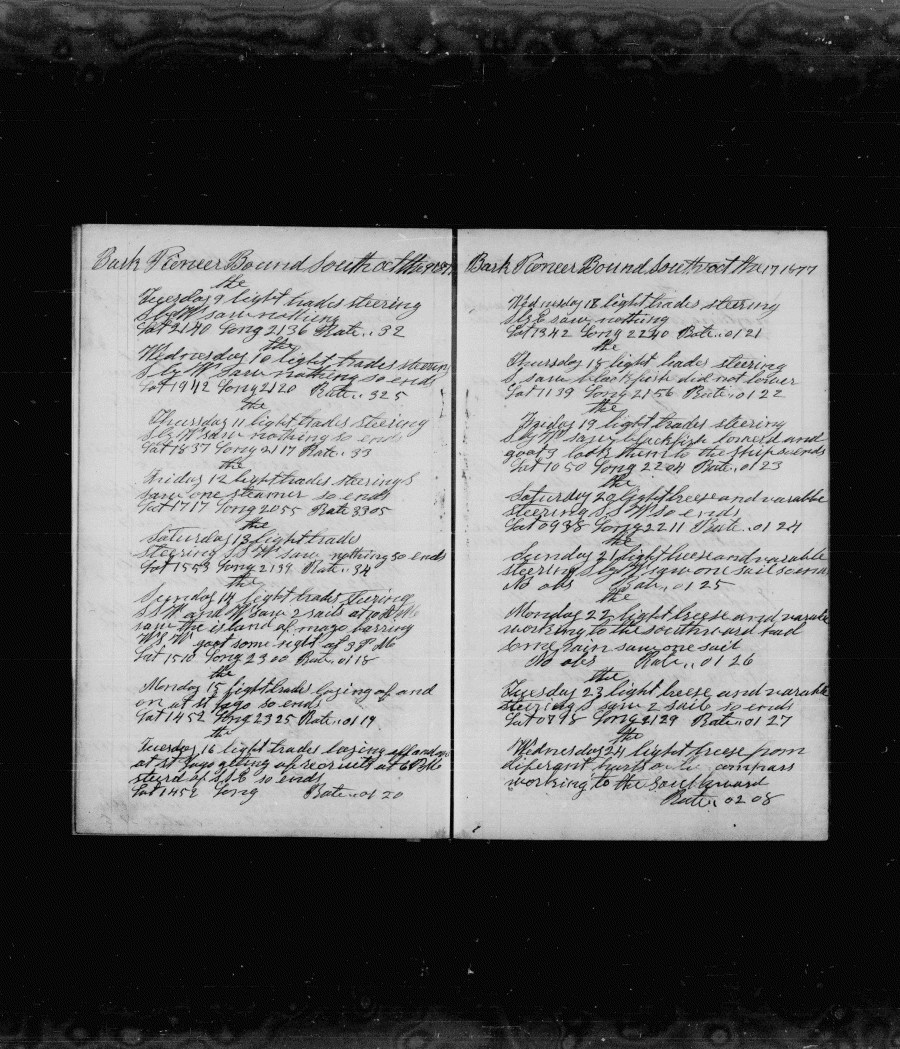 Bark Pioneer Bound South oct the 9 1877
the
Tuesday 9 light trades steering
S by W saw nothing
Lat 2140 Long 2136 Rate .. 32
the
Wednesday 10 light trades steering
S by W Saw nothing so ends
Lat 1942 Long 2120 Rate .. 325
the
Thursday 11 light trades steering
S by W saw nothing so ends
Lat 1837 Long 2117 Rate .. 33
the
Friday 12 light trades steering S
saw one steamer so ends
Lat 1717 Long 2055 Rate 3305
the
Saturday 13 light trades
steering S S W saw nothing so ends
Lat 1553 Long 2139 Rate .. 34
the
Sunday 14 light trades
S S W and W Saw 2 sails at
saw the island of mayo barring
W S W goot some night at 3 P M
Lat 1510 Long 2300 Rate .. 0118
the
Monday 15 light trades laying of and
on at st Jago so ends
Lat 1452 Long 2325 Rate .. 0119
the
Tuesday 16 light trades laying off and on
at st Jago geting up recruits at 6 P M
sterd of S S E so ends
Lat 1452 Long Rate .. 0120
Bark Pioneer Bound South oct the 17 1877
Wednesday 18 light trades steering
S by E saw nothing
Lat 1342 Long 2240 Rate .. 0121
the
Thursday 18 light trades steering
S saw blackfish did not lower
Lat 1139 Long 2156 Rate .. 0122
the
Friday 19 light trades steering
S by W saw blackfish lowerd and
goot 3 took them to the ship so ends
Lat 1050 Long 2204 Rate .. 0123
the
Saturday 20 light breese and varable
steering S S W so ends
Lat 0938 Long 2211 Rate .. 0124
the
Sunday 21 light breese and varable
steering S by W saw one sail so ends
No obs Rate .. 0125
the
Monday 22 light breese and varable
working to the southward had
some rain saw one sail
No obs Rate .. 0126
the
Tuesday 23 light breese and varable
steering S saw 2 sails so ends
Lat 0748 Long 2129 Rate .. 0127
the
Wednesday 24 light breese from
diferant parts compass
working to the southward
Rate .. 0208